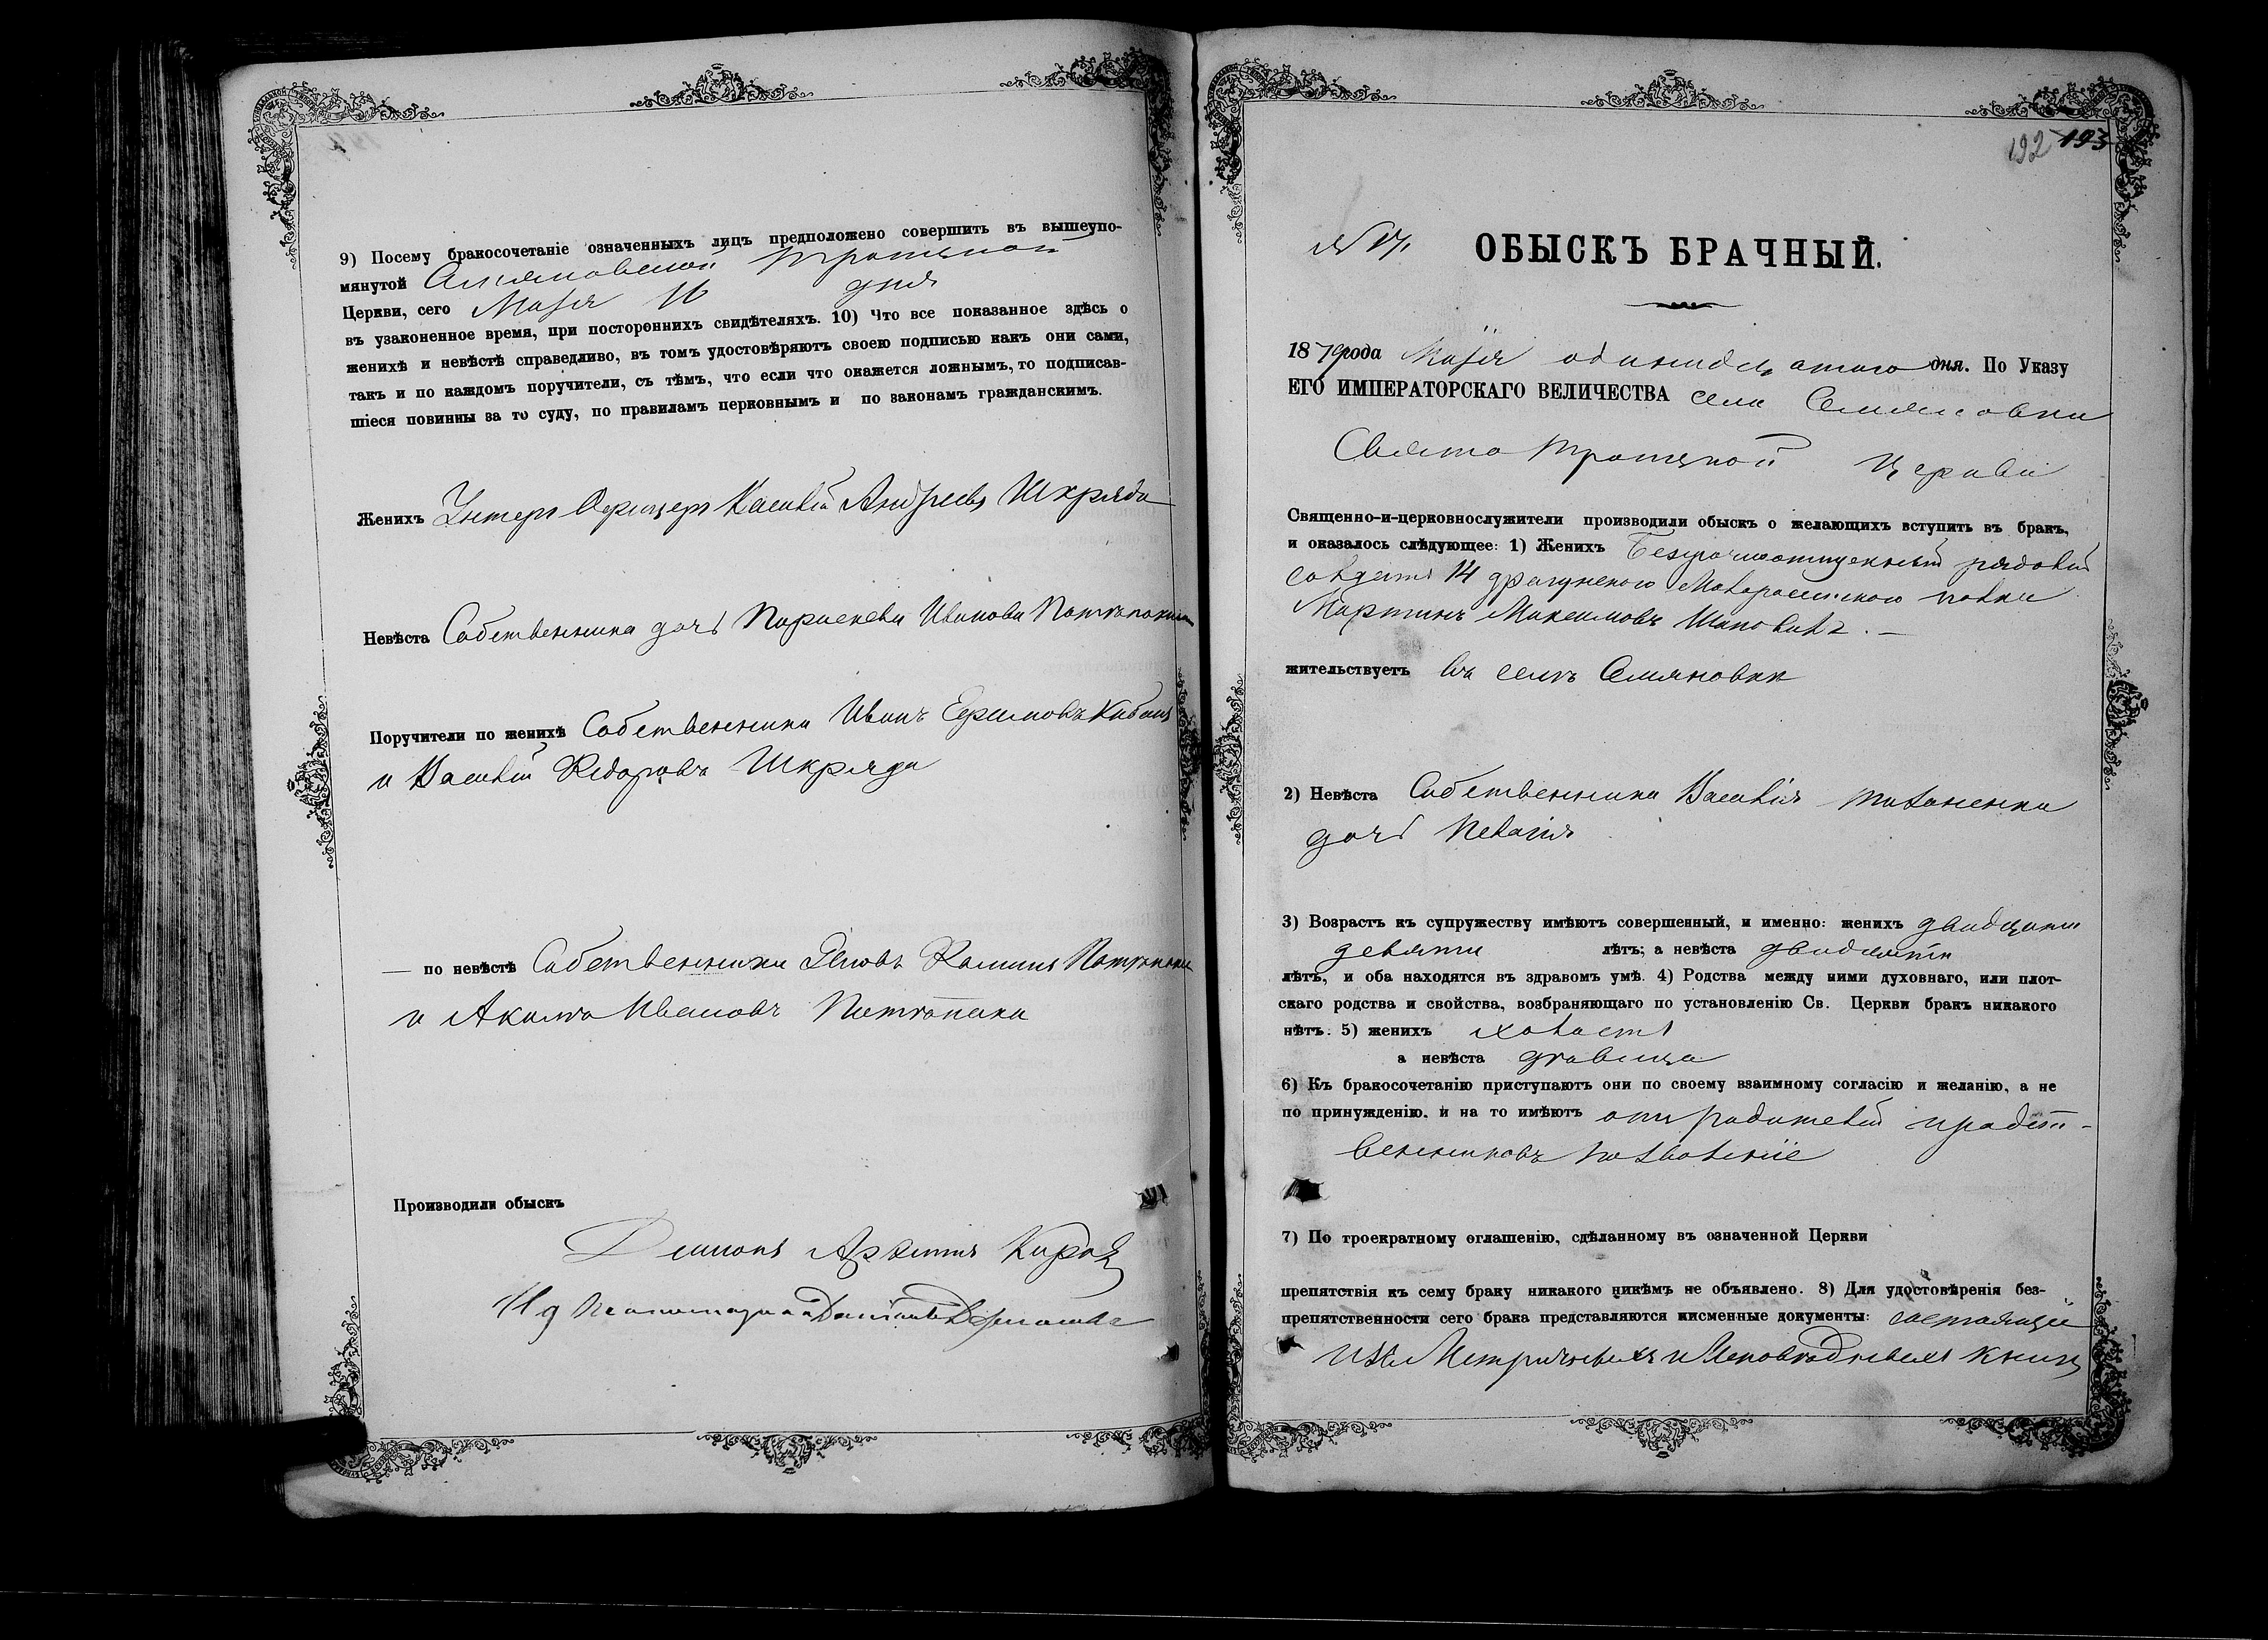 9) Посему бракосочетаніе означенныхъ лицъ предположено совершить въ вышеупо-
мянутой Семяновской Троицкой
Церкви, сего Маія 11 дня
въ узаконенное время, при постороннихъ свидѣтеляхъ. 10) Что все показанное здѣсь о
женихѣ и невѣстѣ справедливо, въ томъ удостовѣряютъ своею подписью какъ они сами,
такъ и по каждомъ поручители, съ тѣмъ, что если что окажется ложнымъ, то подписав-
шіеся повинны за то суду, по правиламъ церковнымъ и по законамъ гражданскимъ.
Женихъ Унтеръ Офицеръ Касіянъ Андреевъ Шкряда
Невѣста Собственника дочь Параскева Иванова
Поручители по женихѣ Собственники Иванъ Ефимовъ Кабанъ
и Василій Ѳедоровъ Шкряда
— по невѣстѣ Собственники
и Ивановъ
Производили обыскъ
193
192
№ 17.
ОБЫСКЪ БРАЧНЫЙ.
1879 года Маія одинадцатаго дня. По Указу
ЕГО ИМПЕРАТОРСКАГО ВЕЛИЧЕСТВА села Семяновки
Свято Троицкой Церкви
Священно-и-церковнослужители производили обыскъ о желающихъ вступить въ бракъ,
и оказалось слѣдующее: 1) Женихъ Безсрочноотпускный рядовый
солдатъ 14 драгунскаго Малороссійскаго полка
Мартинъ Максимовъ Шаповалъ. —
жительствуетъ въ селѣ Семяновки
2) Невѣста Собственника Василія
дочь Пелагія
3) Возрастъ къ супружеству имѣютъ совершенный, и именно: женихъ двадцати
девяти лѣтъ; а невѣста двадцати
лѣтъ, и оба находятся въ здравомъ умѣ. 4) Родства между ними духовнаго, или плот-
скаго родства и свойства, возбраняющаго по установленію Св. Церкви бракъ никакого
нѣтъ. 5) женихъ холостъ
а невѣста дѣвица
6) Къ бракосочетанію приступаютъ они по своему взаимному согласію и желанію, а не
по принужденію. и на то имѣютъ отъ родителей
позволеніе
7) По троекратному оглашенію, сдѣланному въ означенной Церкви
препятствія къ сему браку никакого никѣмъ не объявлено. 8) Для удостовѣренія без-
препятственности сего брака представляются писменные документы:
изъ Метричныхъ и Исповѣдныхъ книгъ